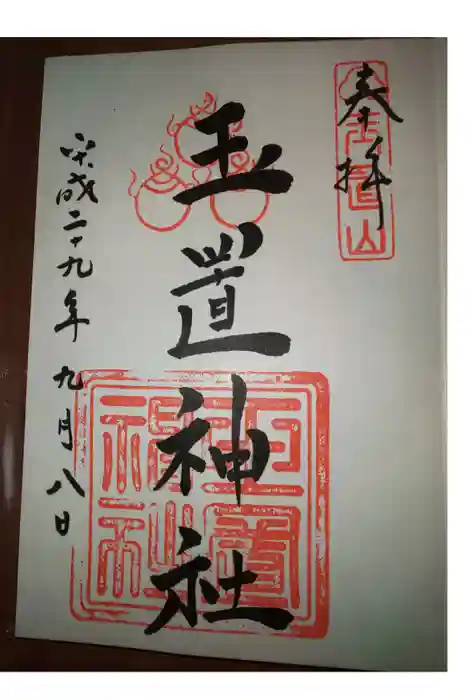 奉拝
玉置山
玉置神社
平成二十九年九月八日